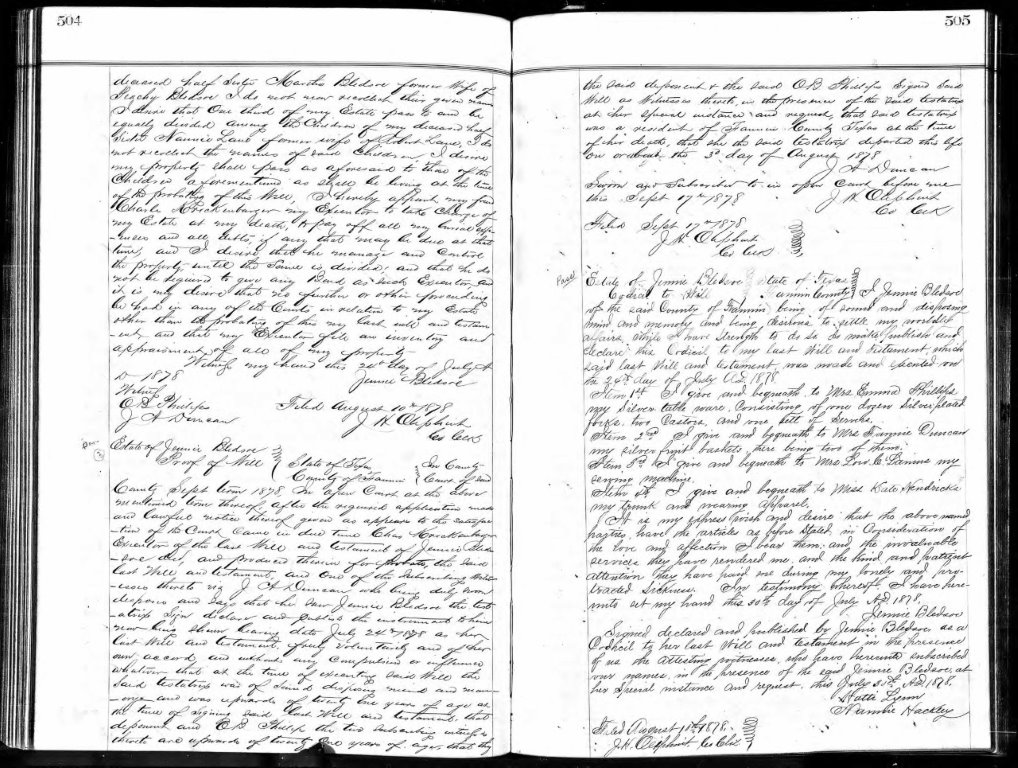 504
deceased half Sister Martha Bledsoe former Wife of
Peachy Bledsoe I do not now recollect their given names
I desire that One third of my Estate pass to and be
equally divided among the Children of my deceased half
Sister Nannie Lane former wife of Robert Lane, I do
not recollect the names of said Children, I desire
my property shall pass as aforesaid to those of the
Children aforementioned as shall be living at the time
of the probating of this Will, I hereby appoint my friend
Charles Brockenburger my Executor to take charge of
my Estate at my death, to pay off all my burial expe-
nses and all debts, if any that may be due at that
time, and I desire that he manage and Control
the property until the Same is divided; and that he do
not be required to give any Bond as such Executor, and
it is my desire that no further or other proceeding
be had in any of the Courts in relation to my Estate
other than the probating of this my last will and testam-
ent, and that my Executor file an inventory and
appraisement of all of my property
Witness my hand this 24th day of July A
D 1878 Jennie Bledsoe
Witness
O B Philips Filed August 10th 1878
J A Duncan J H Oliphint
Co Clk
Estate of Jennie Bledsoe
Proof of Will State of Texas In County
County of Fannin Court of said
County Sept term 1878 In open Court at the above
mentioned term thereof, after the required application made
and lawful notice thereof given as appears to the satisfac-
tion of the Court Came in due time Chas Brockenburger
Executor of the last Will and testament of Jennie Bled-
soe decd, and produced therein for probate, the said
last Will and testament, and One of the subscribing Witn-
esses thereto viz J A Duncan who being duly sworn
deposes and says that he saw Jennie Bledsoe the test-
atrix sign declare and publish the instrument to him
now here shown bearing date July 24th 1878 as her
last Will and testament, freely voluntarily and of her
own accord and without any Compulsion or influence
whatever that at the time of executing said Will the
said testatrix was of sound disposing mind and mem-
ory and was upwards of twenty one years of age at
the time of signing said last Will and testament, that
deponent and O B Philips the two subscribing witnesses
thereto are upwards of twenty one years of age, that they
505
the said deponent & the said O B Philips Signed Said
Will as Witnesses thereto, in the presence of the said testatrix
at her special instance and request, that said testatrix
was a resident of Fannin County Texas at the time
of her death, that she the said testatrix departed this life
on or about the 3d day of August 1878
J A Duncan
Sworn and Subscribed to in open Court before me
this Sept 17th 1878 J H Oliphint
Co Clk
Filed Sept 17th 1878
J H Oliphint
Co Clk
Estate of Jennie Bledsoe State of Texas
Codicil to Will Fannin County I Jennie Bledsoe
of the said County of Fannin being of sound and disposing
mind and memory and being desirous to settle my worldly
affairs, while I have strength to do so do make, publish and
declare this Codicil to my last Will and testament, which
said last Will and testament was made and executed on
the 24th day of July A.D. 1878.
Item 1st I give and bequeath to Mrs Emma Phillips
my silver table ware, Consisting of one dozen silver plated
forks, two Castors, and one sett of
Item 2nd I give and bequeath to Mrs Fannie Duncan
my silver fruit baskets, there being two of them.
Item 3d I give and bequeath to Mrs my
sewing machine.
Item 4th I give and bequeath to Miss Kate Hendricks
my trunk and wearing apparel.
It is my express wish and desire that the above named
parties, have the articles as before stated, in Consideration of
the love and affection I bear them, and the invaluable
services they have rendered me, and the kind and
attention they have paid me during my lonely and pro-
tracted Sickness. In testimony whereof I have here-
unto set my hand this 30th day of July A.D. 1878.
Jennie Bledsoe
Signed declared and published by Jennie Bledsoe as a
Codicil to her last Will and testament in the presence
of us the attesting witnesses, who have hereunto subscribed
our names in the presence of the said Jennie Bledsoe, at
her special instance and request, this July 30th A.D. 1878.
Hatti
Nannie Hackley
Filed August 10th 1878.
J.H. Oliphint Co Clk